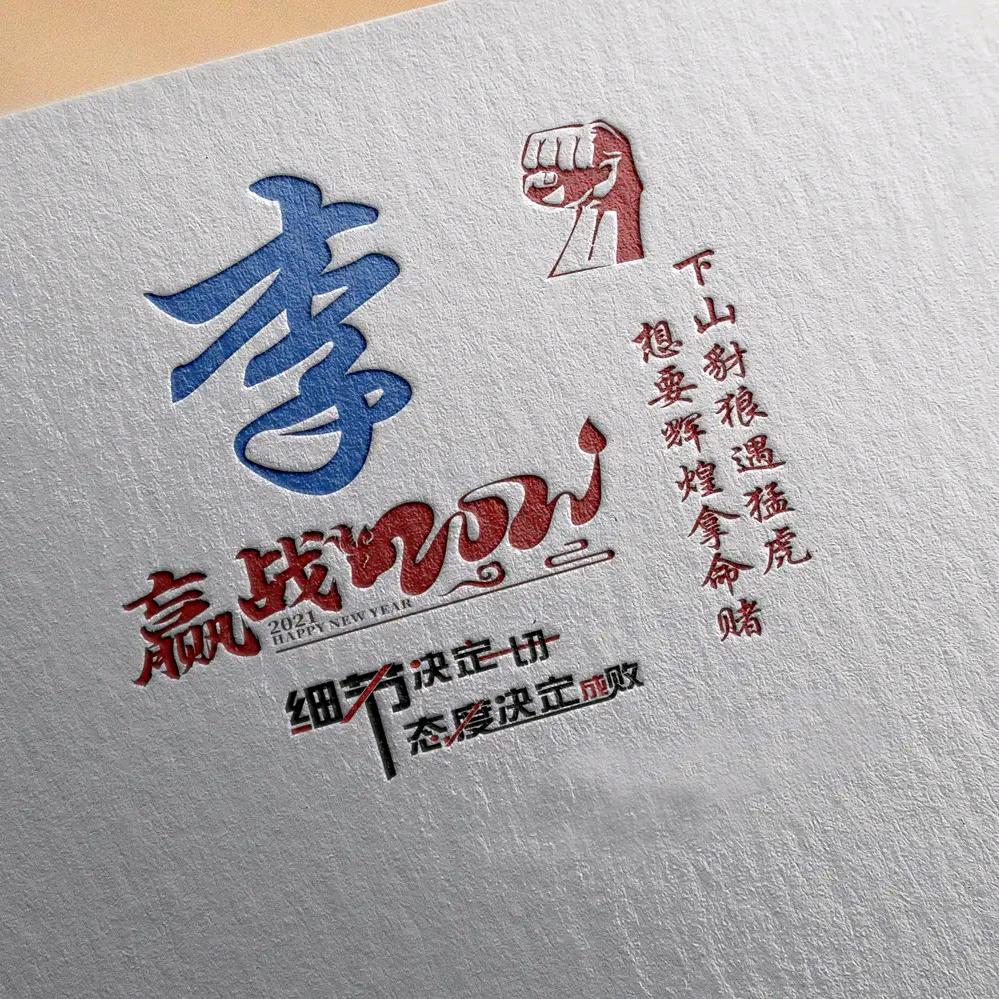 李
下山豺狼遇猛虎
想要辉煌拿命赌
赢战2021
2021
HAPPY NEW YEAR
细节决定一切
态度决定成败